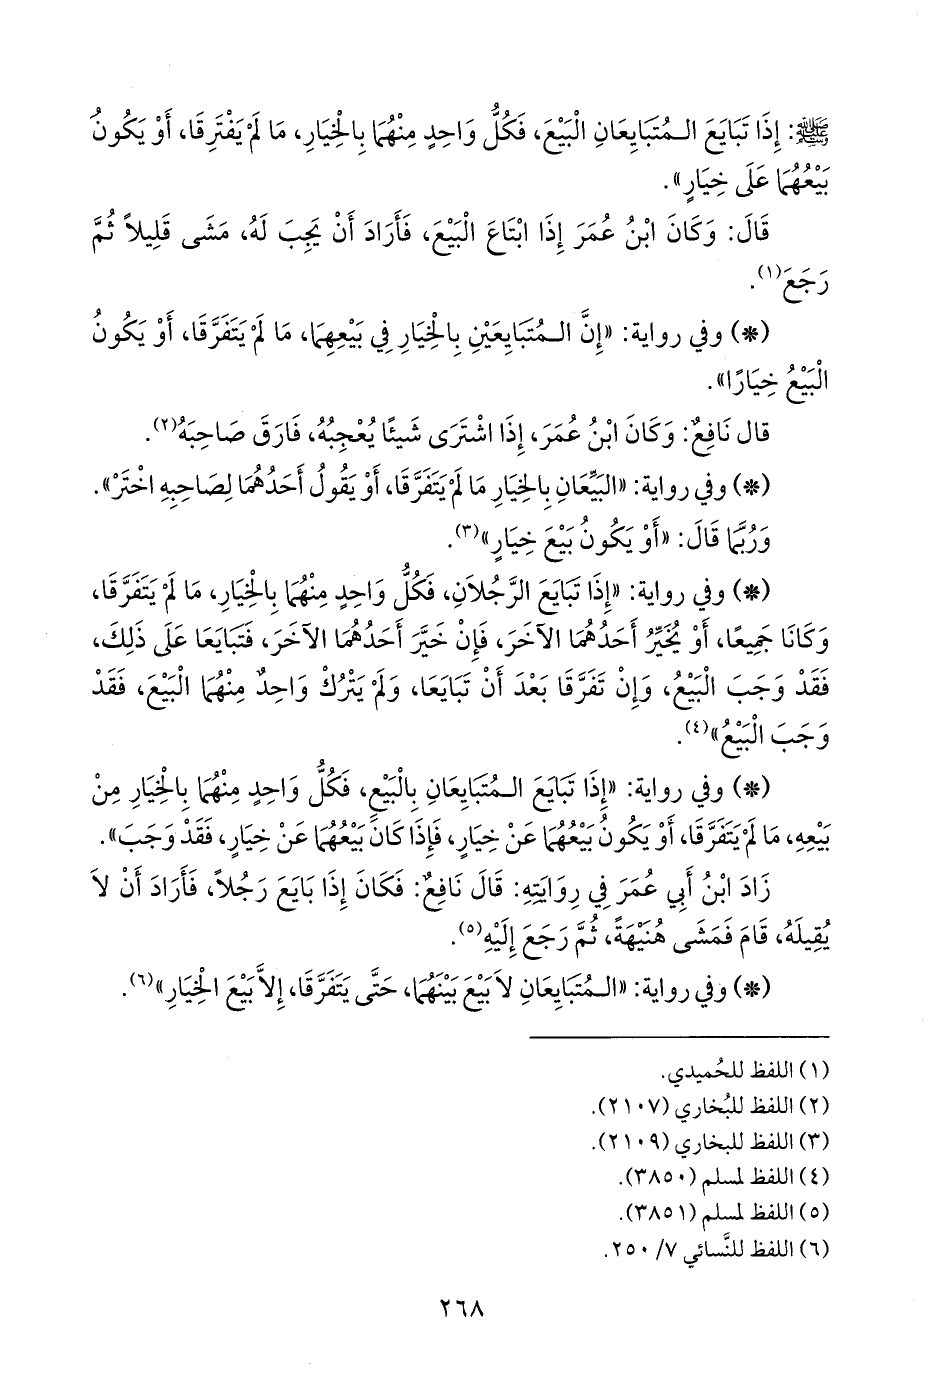 ﷺ: إِذَا تَبَايَعَ الْـمُتَبَايِعَانِ الْبَيْعَ، فَكُلُّ وَاحِدٍ مِنْهُمَا بِالْخِيَارِ، مَا لَمْ يَفْتَرِقَا، أَوْ يَكُونُ
بَيْعُهُمَا عَلَى خِيَارٍ».
قَالَ: وَكَانَ ابْنُ عُمَرَ إِذَا ابْتَاعَ الْبَيْعَ، فَأَرَادَ أَنْ يَجِبَ لَهُ، مَشَى قَلِيلاً ثُمَّ
رَجَعَ(١).
(*) وفي رواية: «إِنَّ الْـمُتَبَايِعَيْنِ بِالْخِيَارِ فِي بَيْعِهِمَا، مَا لَمْ يَتَفَرَّقَا، أَوْ يَكُونُ
الْبَيْعُ خِيَارًا».
قال نَافِعٌ: وَكَانَ ابْنُ عُمَرَ، إِذَا اشْتَرَى شَيْئًا يُعْجِبُهُ، فَارَقَ صَاحِبَهُ(٢).
(*) وفي رواية: «الْبَيِّعَانِ بِالْخِيَارِ مَا لَمْ يَتَفَرَّقَا، أَوْ يَقُولُ أَحَدُهُمَا لِصَاحِبِهِ اخْتَرْ».
وَرُبَّمَا قَالَ: «أَوْ يَكُونُ بَيْعَ خِيَارٍ»(٣).
(*) وفي رواية: «إِذَا تَبَايَعَ الرَّجُلاَنِ، فَكُلُّ وَاحِدٍ مِنْهُمَا بِالْخِيَارِ، مَا لَمْ يَتَفَرَّقَا،
وَكَانَا جَمِيعًا، أَوْ يُخَيِّرُ أَحَدُهُمَا الآخَرَ، فَإِنْ خَيَّرَ أَحَدُهُمَا الآخَرَ، فَتَبَايَعَا عَلَى ذَلِكَ،
فَقَدْ وَجَبَ الْبَيْعُ، وَإِنْ تَفَرَّقَا بَعْدَ أَنْ تَبَايَعَا، وَلَمْ يَتْرُكْ وَاحِدٌ مِنْهُمَا الْبَيْعَ، فَقَدْ
وَجَبَ الْبَيْعُ»(٤).
(*) وفي رواية: «إِذَا تَبَايَعَ الْـمُتَبَايِعَانِ بِالْبَيْعِ، فَكُلُّ وَاحِدٍ مِنْهُمَا بِالْخِيَارِ مِنْ
بَيْعِهِ، مَا لَمْ يَتَفَرَّقَا، أَوْ يَكُونُ بَيْعُهُمَا عَنْ خِيَارٍ، فَإِذَا كَانَ بَيْعُهُمَا عَنْ خِيَارٍ، فَقَدْ وَجَبَ».
زَادَ ابْنُ أَبِي عُمَرَ فِي رِوَايَتِهِ: قَالَ نَافِعٌ: فَكَانَ إِذَا بَايَعَ رَجُلاً، فَأَرَادَ أَنْ لاَ
يُقِيلَهُ، قَامَ فَمَشَى هُنَيْهَةً، ثُمَّ رَجَعَ إِلَيْهِ(٥).
(*) وفي رواية: «الْـمُتَبَايِعَانِ لاَ بَيْعَ بَيْنَهُمَا، حَتَّى يَتَفَرَّقَا، إِلاَّ بَيْعَ الْخِيَارِ»(٦).
(١) اللفظ للحُميدي.
(٢) اللفظ للبُخاري (٢١٠٧).
(٣) اللفظ للبخاري (٢١٠٩).
(٤) اللفظ لمسلم (٣٨٥٠).
(٥) اللفظ لمسلم (٣٨٥١).
(٦) اللفظ للنَّسائي ٧/ ٢٥٠.
٢٦٨